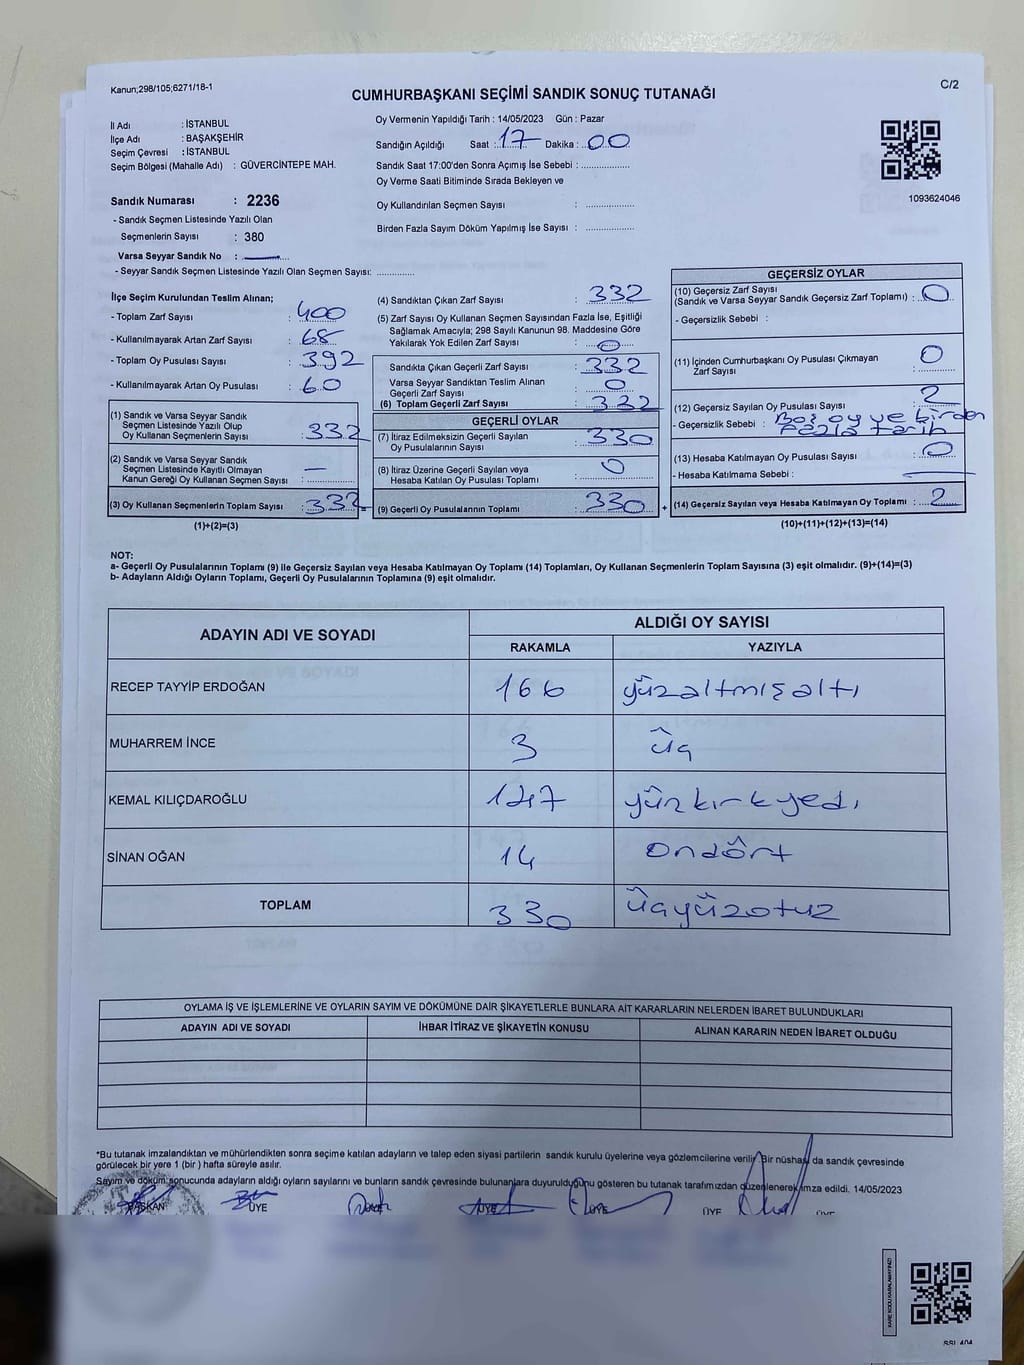 Kanun;298/105;6271/18-1
C/2
CUMHURBAŞKANI SEÇİMİ SANDIK SONUÇ TUTANAĞI
İl Adı : İSTANBUL
İlçe Adı : BAŞAKŞEHİR
Seçim Çevresi : İSTANBUL
Seçim Bölgesi (Mahalle Adı) : GÜVERCİNTEPE MAH.
Oy Vermenin Yapıldığı Tarih : 14/05/2023 Gün : Pazar
Sandığın Açıldığı Saat : 17 Dakika : 00
Sandık Saat 17:00'den Sonra Açımış İse Sebebi : ................
Oy Verme Saati Bitiminde Sırada Bekleyen ve
Oy Kullandırılan Seçmen Sayısı : ................
Birden Fazla Sayım Döküm Yapılmış İse Sayısı : ................
1093624046
Sandık Numarası : 2236
- Sandık Seçmen Listesinde Yazılı Olan
Seçmenlerin Sayısı : 380
Varsa Seyyar Sandık No :
- Seyyar Sandık Seçmen Listesinde Yazılı Olan Seçmen Sayısı: ............
İlçe Seçim Kurulundan Teslim Alınan;
- Toplam Zarf Sayısı : 400
- Kullanılmayarak Artan Zarf Sayısı : 68
- Toplam Oy Pusulası Sayısı : 392
- Kullanılmayarak Artan Oy Pusulası : 60
(1) Sandık ve Varsa Seyyar Sandık
Seçmen Listesinde Yazılı Olup
Oy Kullanan Seçmenlerin Sayısı : 332
(2) Sandık ve Varsa Seyyar Sandık
Seçmen Listesinde Kayıtlı Olmayan
Kanun Gereği Oy Kullanan Seçmen Sayısı : —
(3) Oy Kullanan Seçmenlerin Toplam Sayısı : 332 =
(1)+(2)=(3)
(4) Sandıktan Çıkan Zarf Sayısı : 332
(5) Zarf Sayısı Oy Kullanan Seçmen Sayısından Fazla İse, Eşitliği
Sağlamak Amacıyla; 298 Sayılı Kanunun 98. Maddesine Göre
Yakılarak Yok Edilen Zarf Sayısı : 0
Sandıkta Çıkan Geçerli Zarf Sayısı : 332
Varsa Seyyar Sandıktan Teslim Alınan
Geçerli Zarf Sayısı : 0
(6) Toplam Geçerli Zarf Sayısı : 332
GEÇERLİ OYLAR
(7) İtiraz Edilmeksizin Geçerli Sayılan
Oy Pusulasının Sayısı : 330
(8) İtiraz Üzerine Geçerli Sayılan veya
Hesaba Katılan Oy Pusulası Toplamı : 0
(9) Geçerli Oy Pusulalarının Toplamı : 330 +
GEÇERSİZ OYLAR
(10) Geçersiz Zarf Sayısı
(Sandık ve Varsa Seyyar Sandık Geçersiz Zarf Toplamı) : 0
- Geçersizlik Sebebi :
(11) İçinden Cumhurbaşkanı Oy Pusulası Çıkmayan
Zarf Sayısı : 0
(12) Geçersiz Sayılan Oy Pusulası Sayısı : 2
- Geçersizlik Sebebi : Boş oy ve birden
fazla tercih
(13) Hesaba Katılmayan Oy Pusulası Sayısı : 0
- Hesaba Katılmama Sebebi :
(14) Geçersiz Sayılan veya Hesaba Katılmayan Oy Toplamı : 2
(10)+(11)+(12)+(13)=(14)
NOT:
a- Geçerli Oy Pusulalarının Toplamı (9) ile Geçersiz Sayılan veya Hesaba Katılmayan Oy Toplamı (14) Toplamları, Oy Kullanan Seçmenlerin Toplam Sayısına (3) eşit olmalıdır. (9)+(14)=(3)
b- Adayların Aldığı Oyların Toplamı, Geçerli Oy Pusulalarının Toplamına (9) eşit olmalıdır.
ADAYIN ADI VE SOYADI ALDIĞI OY SAYISI
RAKAMLA YAZIYLA
RECEP TAYYİP ERDOĞAN 166 yüzaltmışaltı
MUHARREM İNCE 3 üç
KEMAL KILIÇDAROĞLU 147 yüzkırkyedi
SİNAN OĞAN 14 ondört
TOPLAM 330 üçyüzotuz
OYLAMA İŞ VE İŞLEMLERİNE VE OYLARIN SAYIM VE DÖKÜMÜNE DAİR ŞİKAYETLERLE BUNLARA AİT KARARLARIN NELERDEN İBARET BULUNDUKLARI
ADAYIN ADI VE SOYADI İHBAR İTİRAZ VE ŞİKAYETİN KONUSU ALINAN KARARIN NEDEN İBARET OLDUĞU
*Bu tutanak imzalandıktan ve mühürlendikten sonra seçime katılan adayların ve talep eden siyasi partilerin sandık kurulu üyelerine veya gözlemcilerine verilir. Bir nüshası da sandık çevresinde
görülecek bir yere 1 (bir ) hafta süreyle asılır.
Sayım ve döküm sonucunda adayların aldığı oyların sayılarını ve bunların sandık çevresinde bulunanlara duyurulduğunu gösteren bu tutanak tarafımızdan düzenlenerek imza edildi. 14/05/2023
BAŞKAN ÜYE ÜYE ÜYE ÜYE ÜYE
KARE KODU KARALAMAYINIZ!